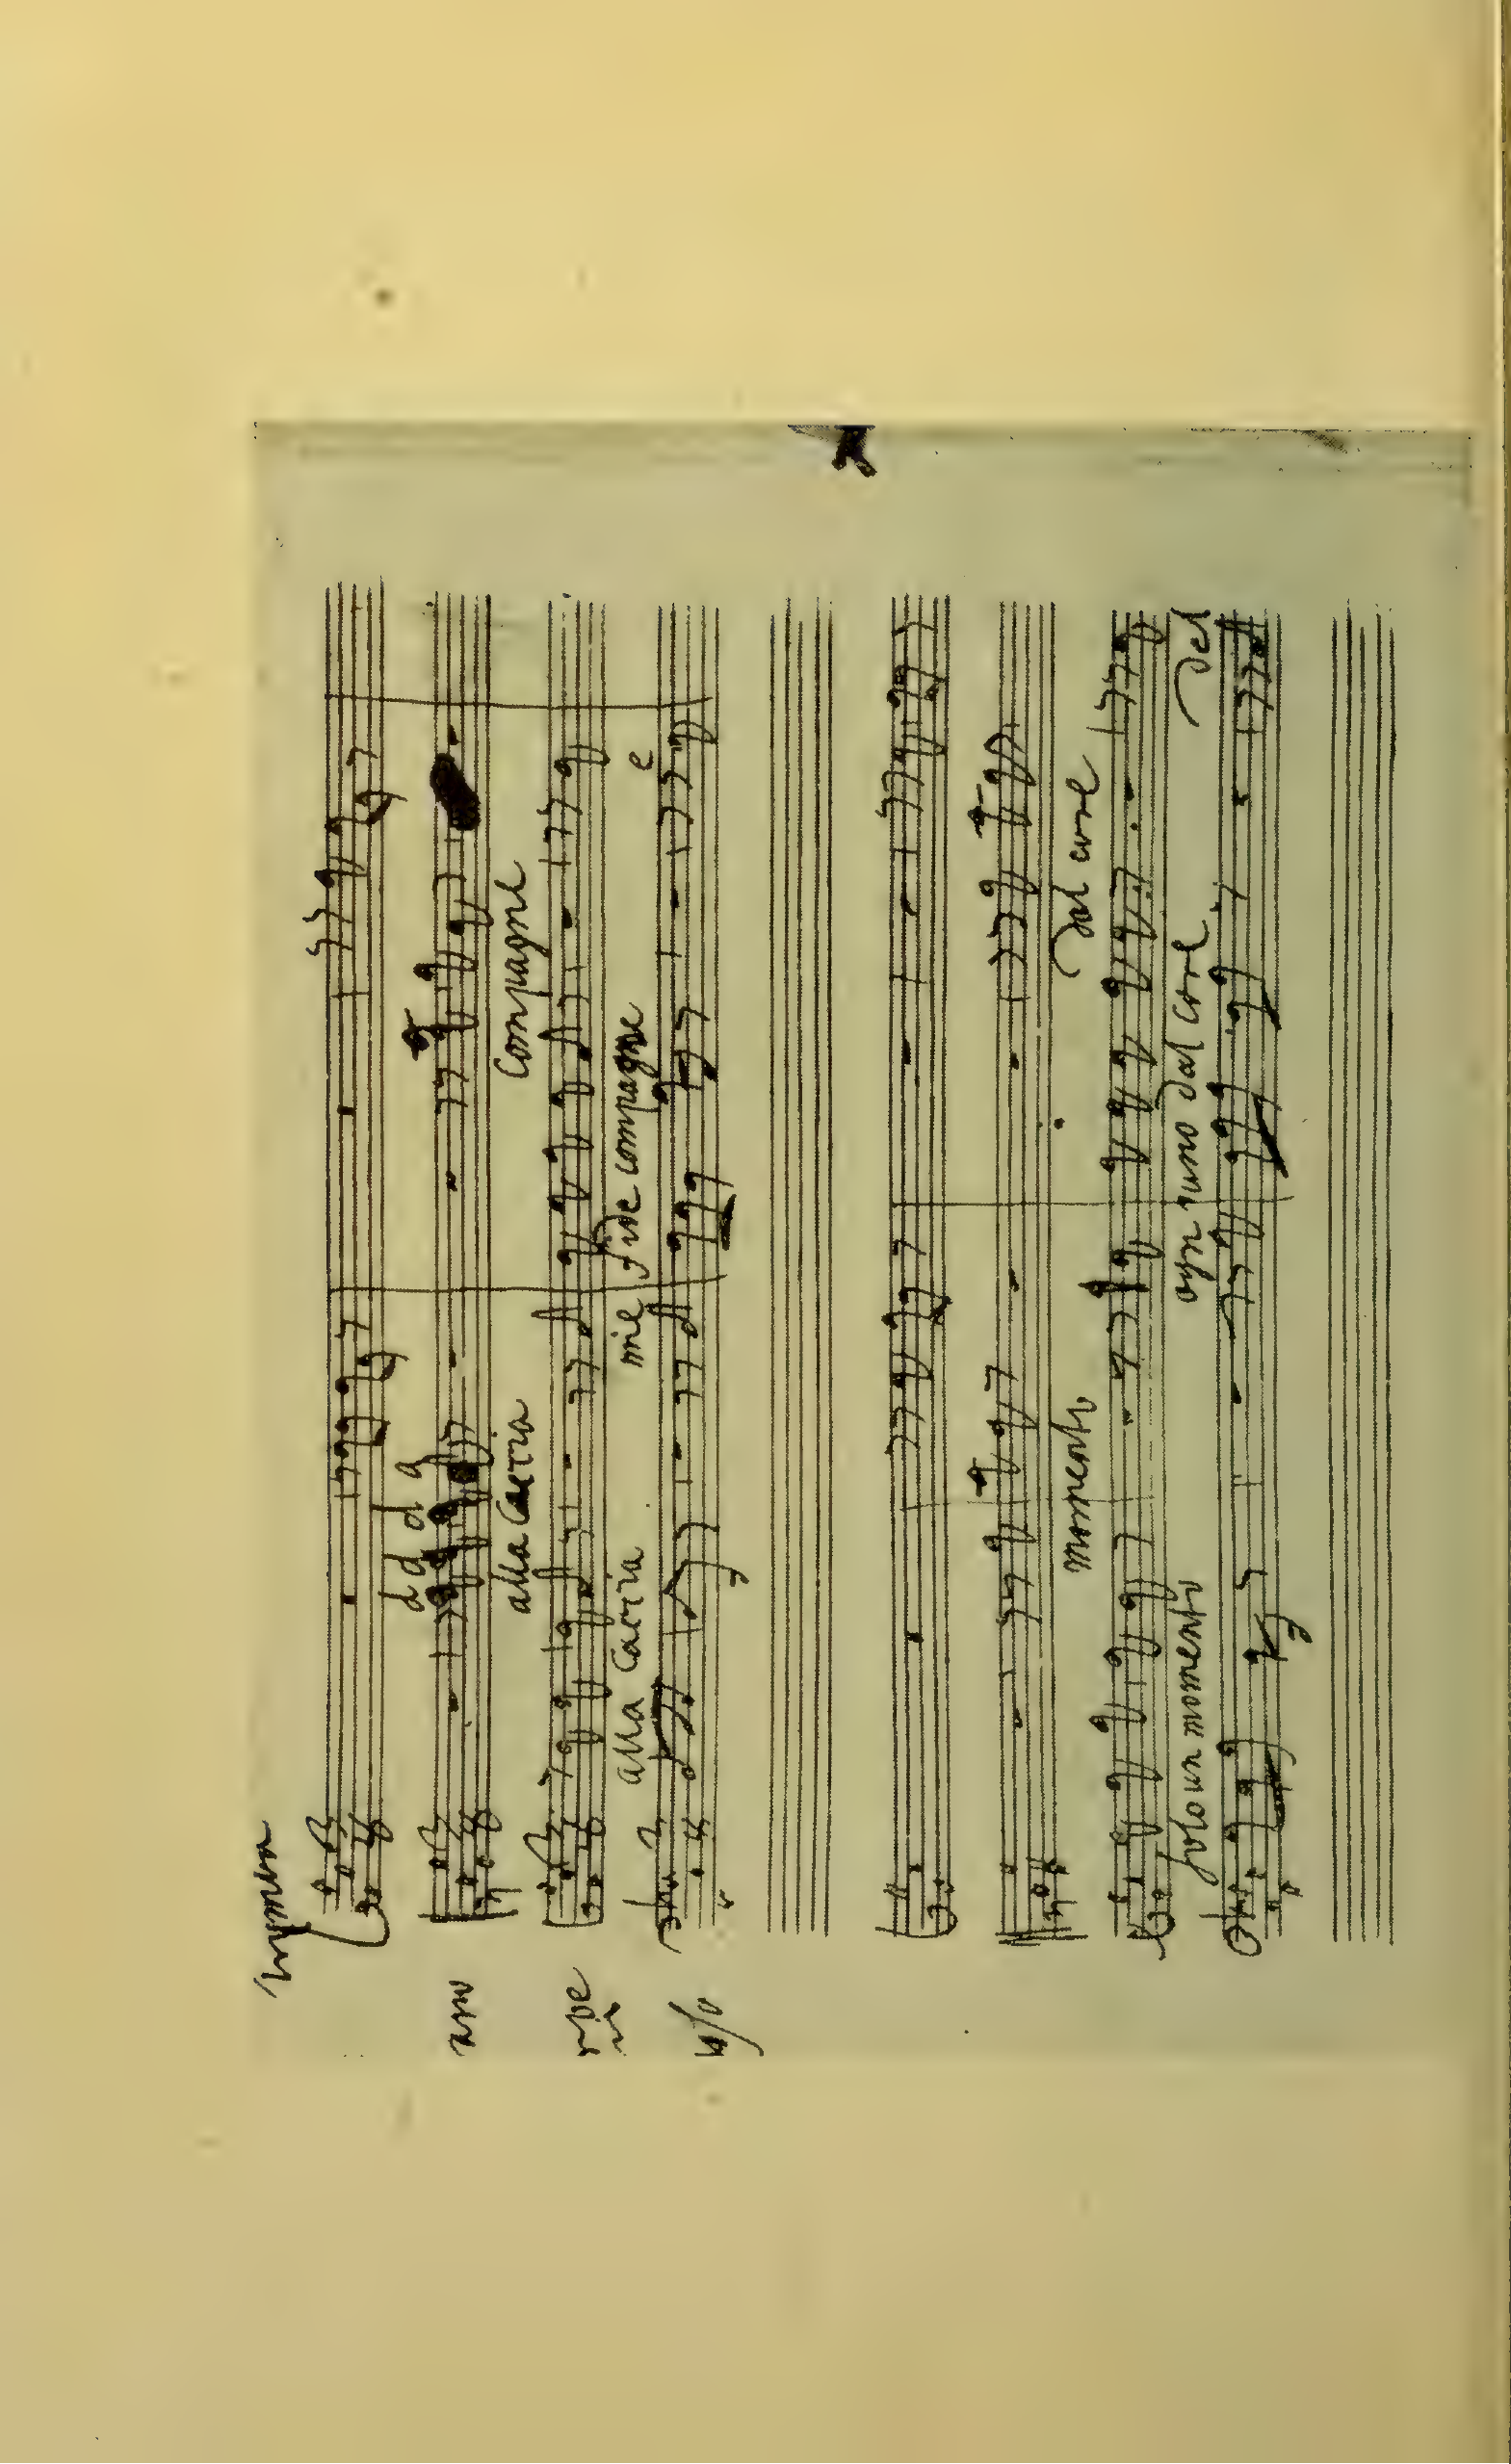 alla Caccia Compagne
alla Caccia mie fide compagne e
momento dal core
solo un momento ogn uno dal core del